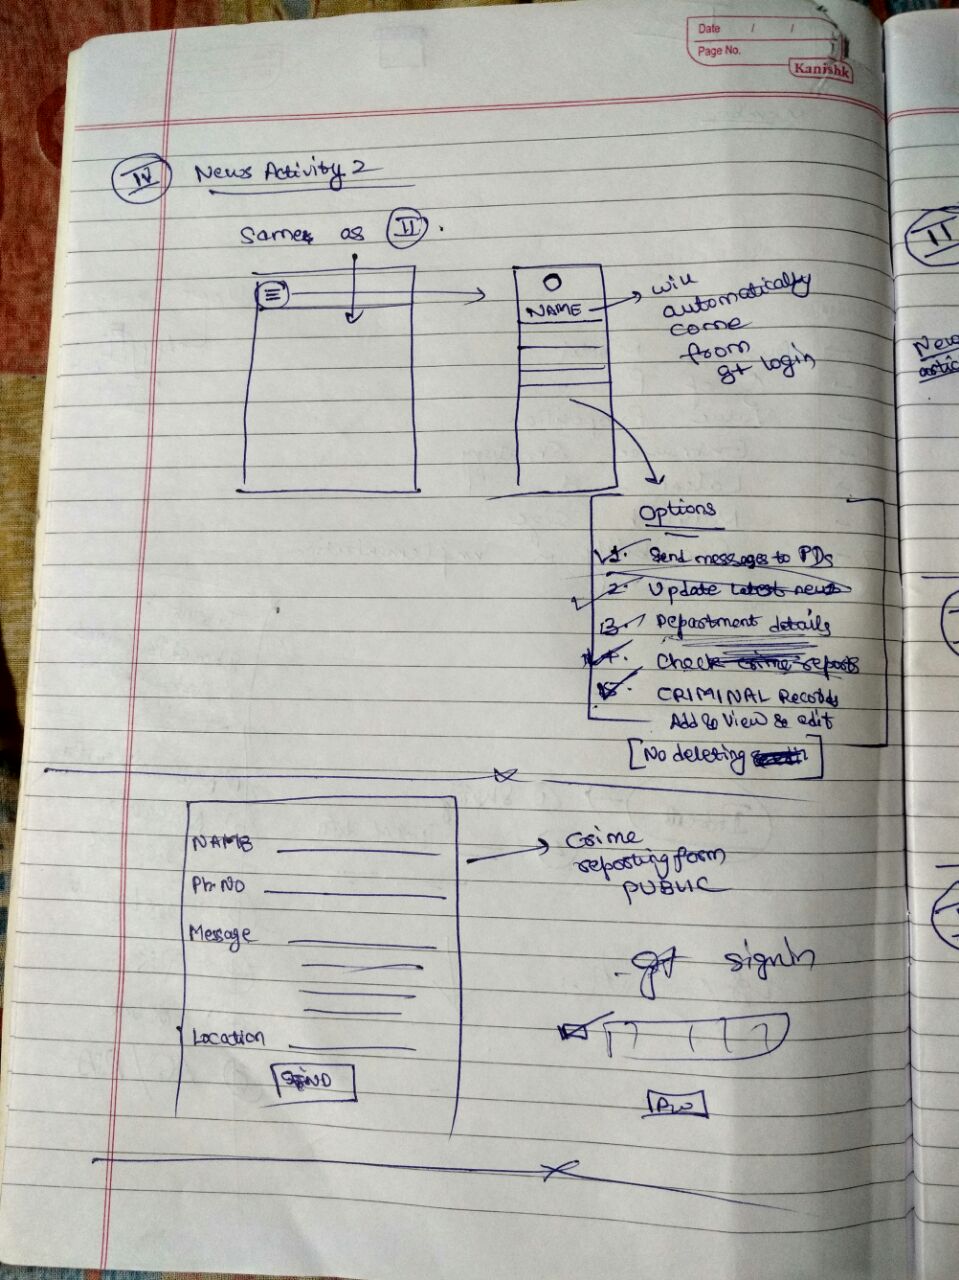 Date / /
Page No.
Kanishk
IV News Activity 2
Same as II.
NAME
will
automatically
come
from
g+ login
Options
1. Send messages to PDs
2. Update latest news
3. Department details
4. Check crime reports
5. CRIMINAL Records
Add & View & edit
[No deleting]
NAME
Ph. No
Message
Location
SEND
Crime
reporting form
PUBLIC
g+ signin
II